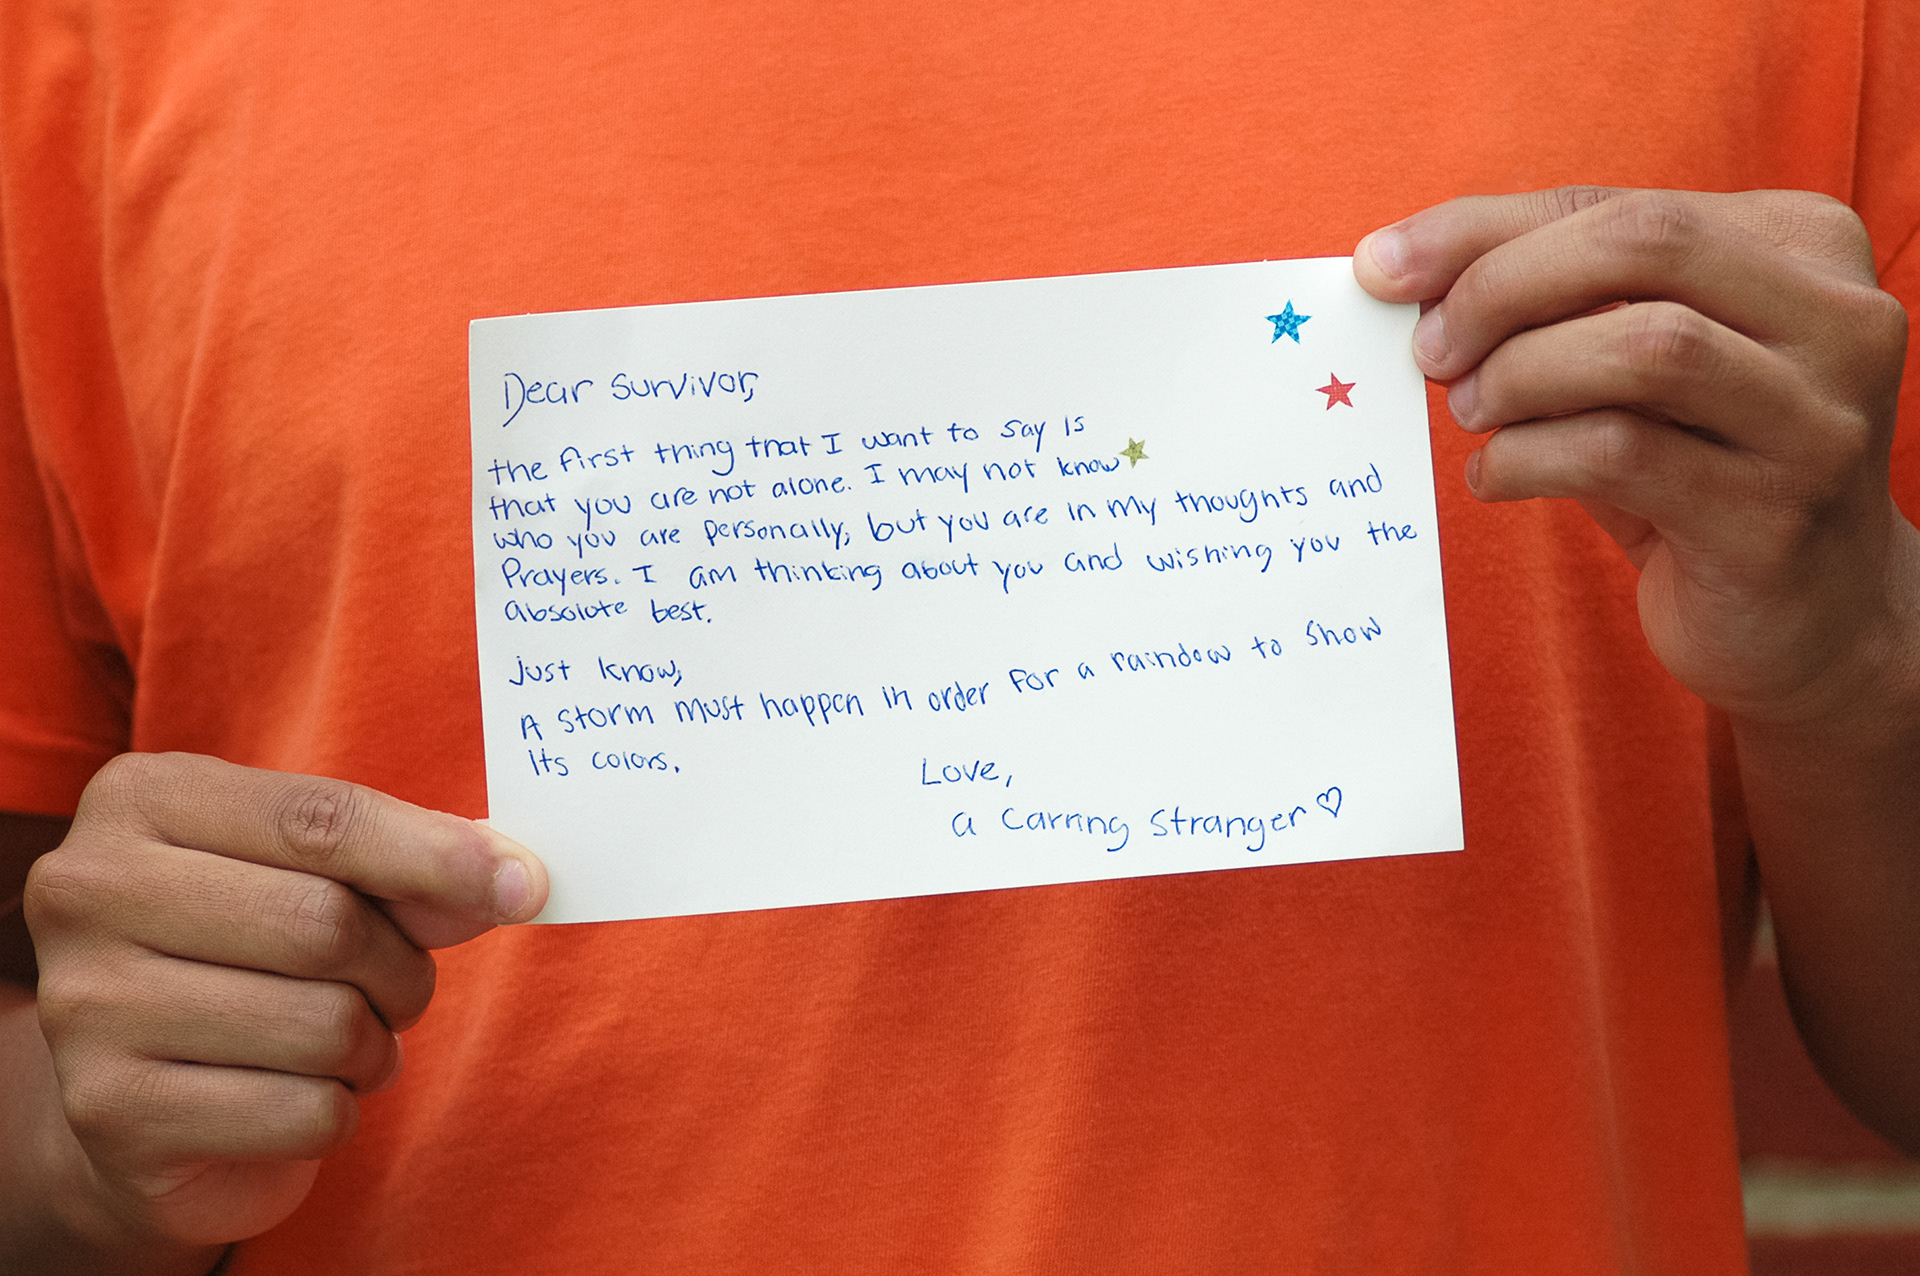 Dear Survivor,
the first thing that I want to say is
that you are not alone. I may not know
who you are personally, but you are in my thoughts and
Prayers. I am thinking about you and wishing you the
absolute best.
Just know,
A storm must happen in order for a raindow to show
its colors.
Love,
a Carring Stranger ♡